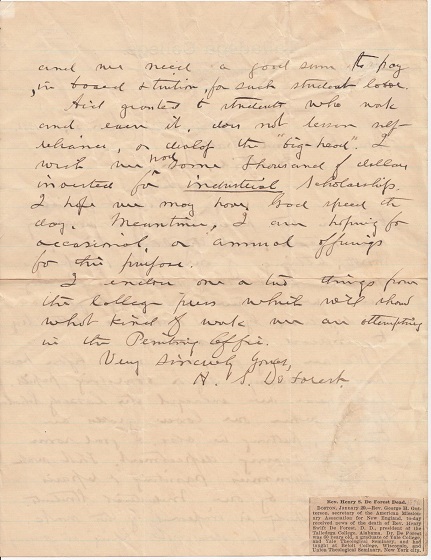 and we need a good sum to pay
in board & tuition, for such student labor.
Aid granted to students who work
and earn it, does not lessen self
reliance, or develop the "big-head". I
wish we had some thousand of dollars
invested for industrial scholarships.
I hope we may have, God speed the
day. Meantime, I am hoping for
occasional, or annual offerings
for this purpose.
I enclose one or two things from
the College press which will show
what kind of work we are attempting
in the Printing Office.
Very Sincerely Yours,
H. S. DeForest.
Rev. Henry S. De Forest Dead.
BOSTON, January 28.—Rev. George H. Gutterson, secretary of the American Missionary
Association for New England, today
received news of the death of Rev. Henry
Swift De Forest, D. D., president of the
Talladega College, Alabama. Dr. De Forest
was 60 years old, a graduate of Yale College,
and Yale Theological Seminary, and had
taught at Beloit College, Wisconsin, and
Union Theological Seminary, New York city.